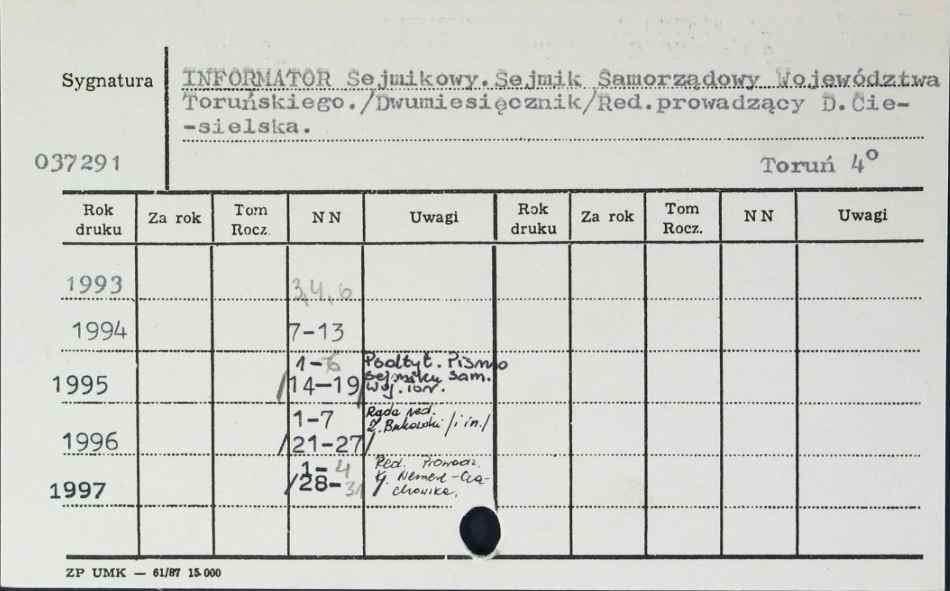 Sygnatura
INFORMATOR Sejmikowy. Sejmik Samorządowy Województwa
Toruńskiego./Dwumiesięcznik/Red.prowadzący D.Cie-
-sielska.
037291
Toruń 4°
Rok druku Za rok Tom Rocz. NN Uwagi Rok druku Za rok Tom Rocz. NN Uwagi
1993 3,4,6
1994 7-13
1995 1-6 /14-19/ Podtyt. Pismo sejmiku sam. woj. tor.
1996 1-7 /21-27/ Rada red. Z. Bukowski /i in./
1997 1-4 /28-31/ Red. prowadz.
ZP UMK — 61/87 15 000